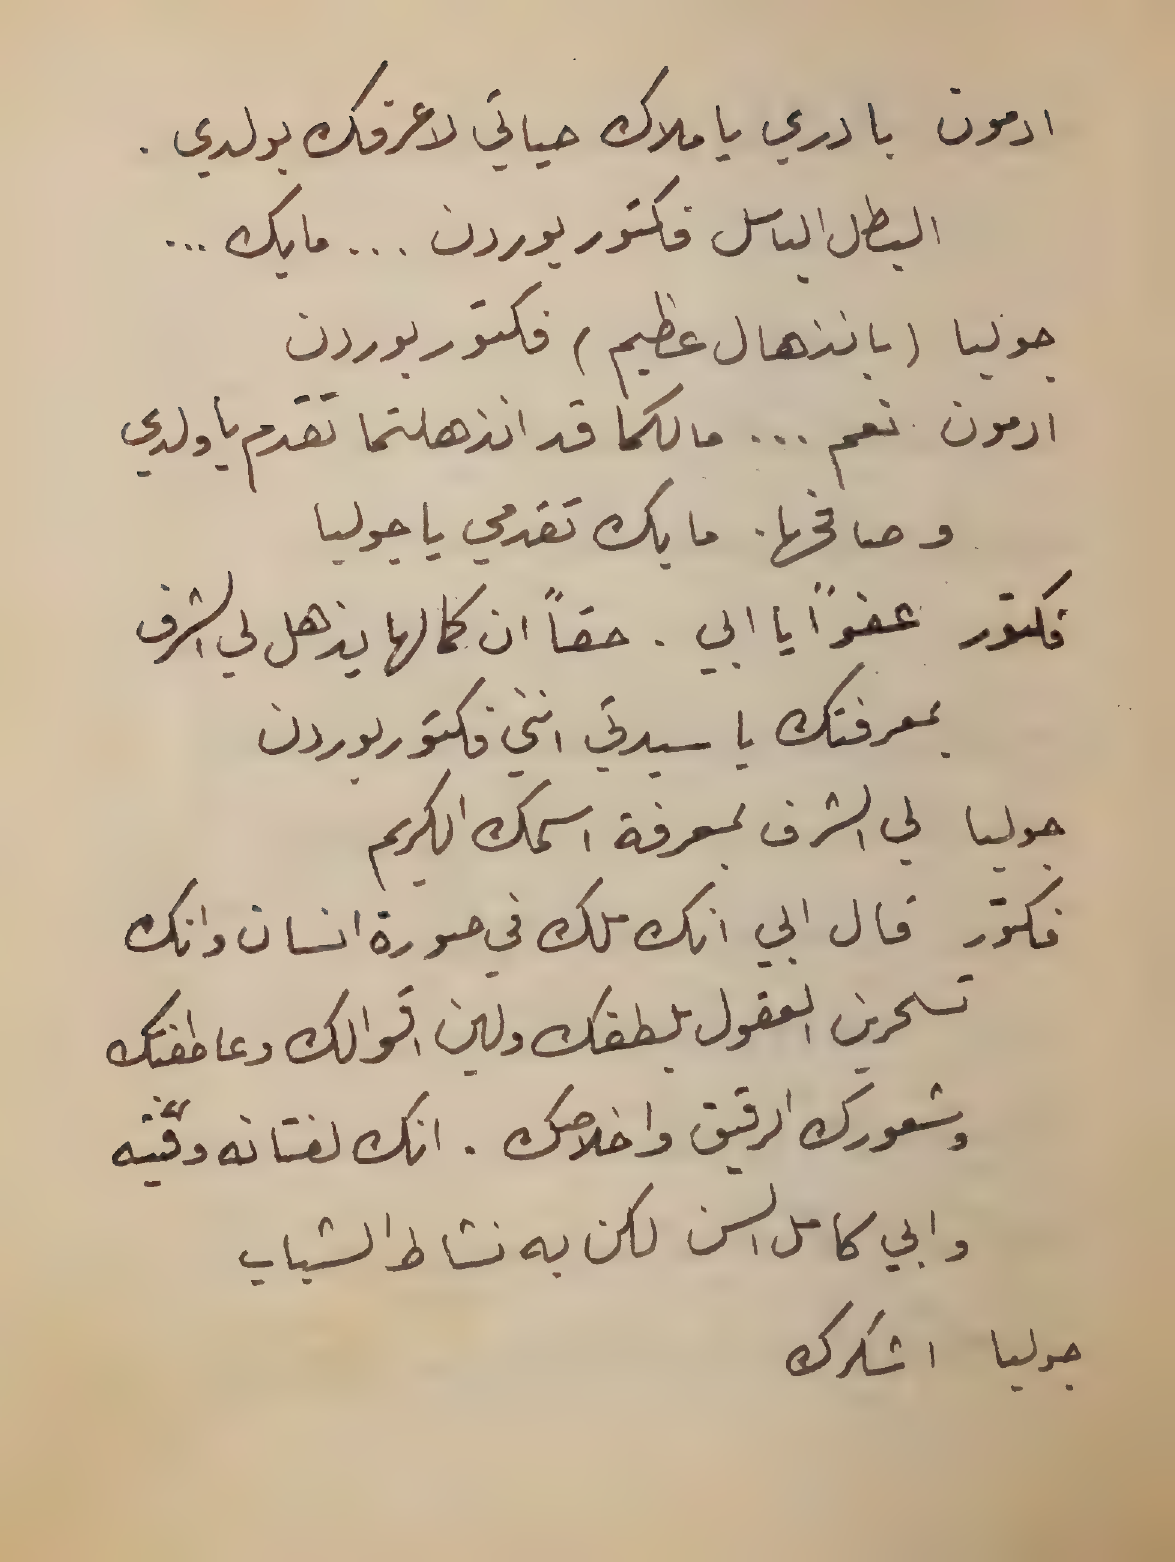 ادمون بادري يا ملاك حياتي لاعرفك بولدي .
البطل الباسل فكتور بوردن ... مابك ...
جوليا (بانذهال عظيم) فكتور بوردن
ادمون نعم ... مالكما قد انذهلتما تقدم يا ولدي
وصافحها. مابك تقدمي يا جوليا
فكتور عفواً يا ابي . حقاً ان كمالها يذهل لي الشرف
بمعرفتك يا سيدتي انني فكتور بوردن
جوليا لي الشرف بمعرفة اسمك الكريم
فكتور قال ابي انك ملك في صورة انسان وانك
تسحرين العقول بلطفك ولين اقوالك وعاطفتك
وشعورك الرقيق واخلاصك . انك لفتانه وفتيّه
وابي كامل السن لكن به نشاط الشباب
جوليا اشكرك